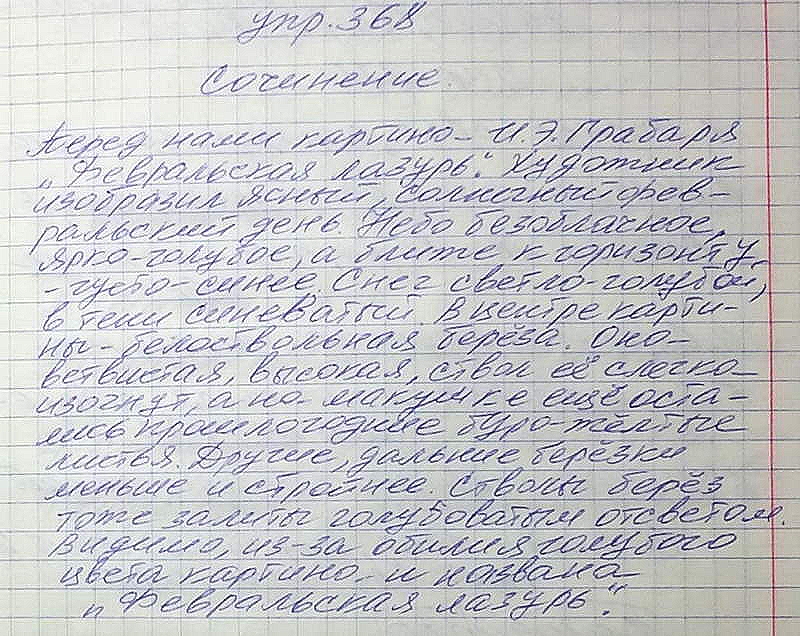 упр. 368
Сочинение.
Перед нами картина И.Э. Грабаря
„Февральская лазурь". Художник
изобразил ясный, солнечный фев-
ральский день. Небо безоблачное,
ярко-голубое, а ближе к горизонту
- густо-синее. Снег светло-голубой,
в тени синеватый. В центре карти-
ны - белоствольная берёза. Она
ветвистая, высокая, ствол её слегка
изогнут, а на макушке ещё оста-
лись прошлогодние буро-жёлтые
листья. Другие, дальние берёзки
меньше и стройнее. Стволы берёз
тоже залиты голубоватым отсветом.
Видимо, из-за обилия голубого
цвета картина и названа
„Февральская лазурь".